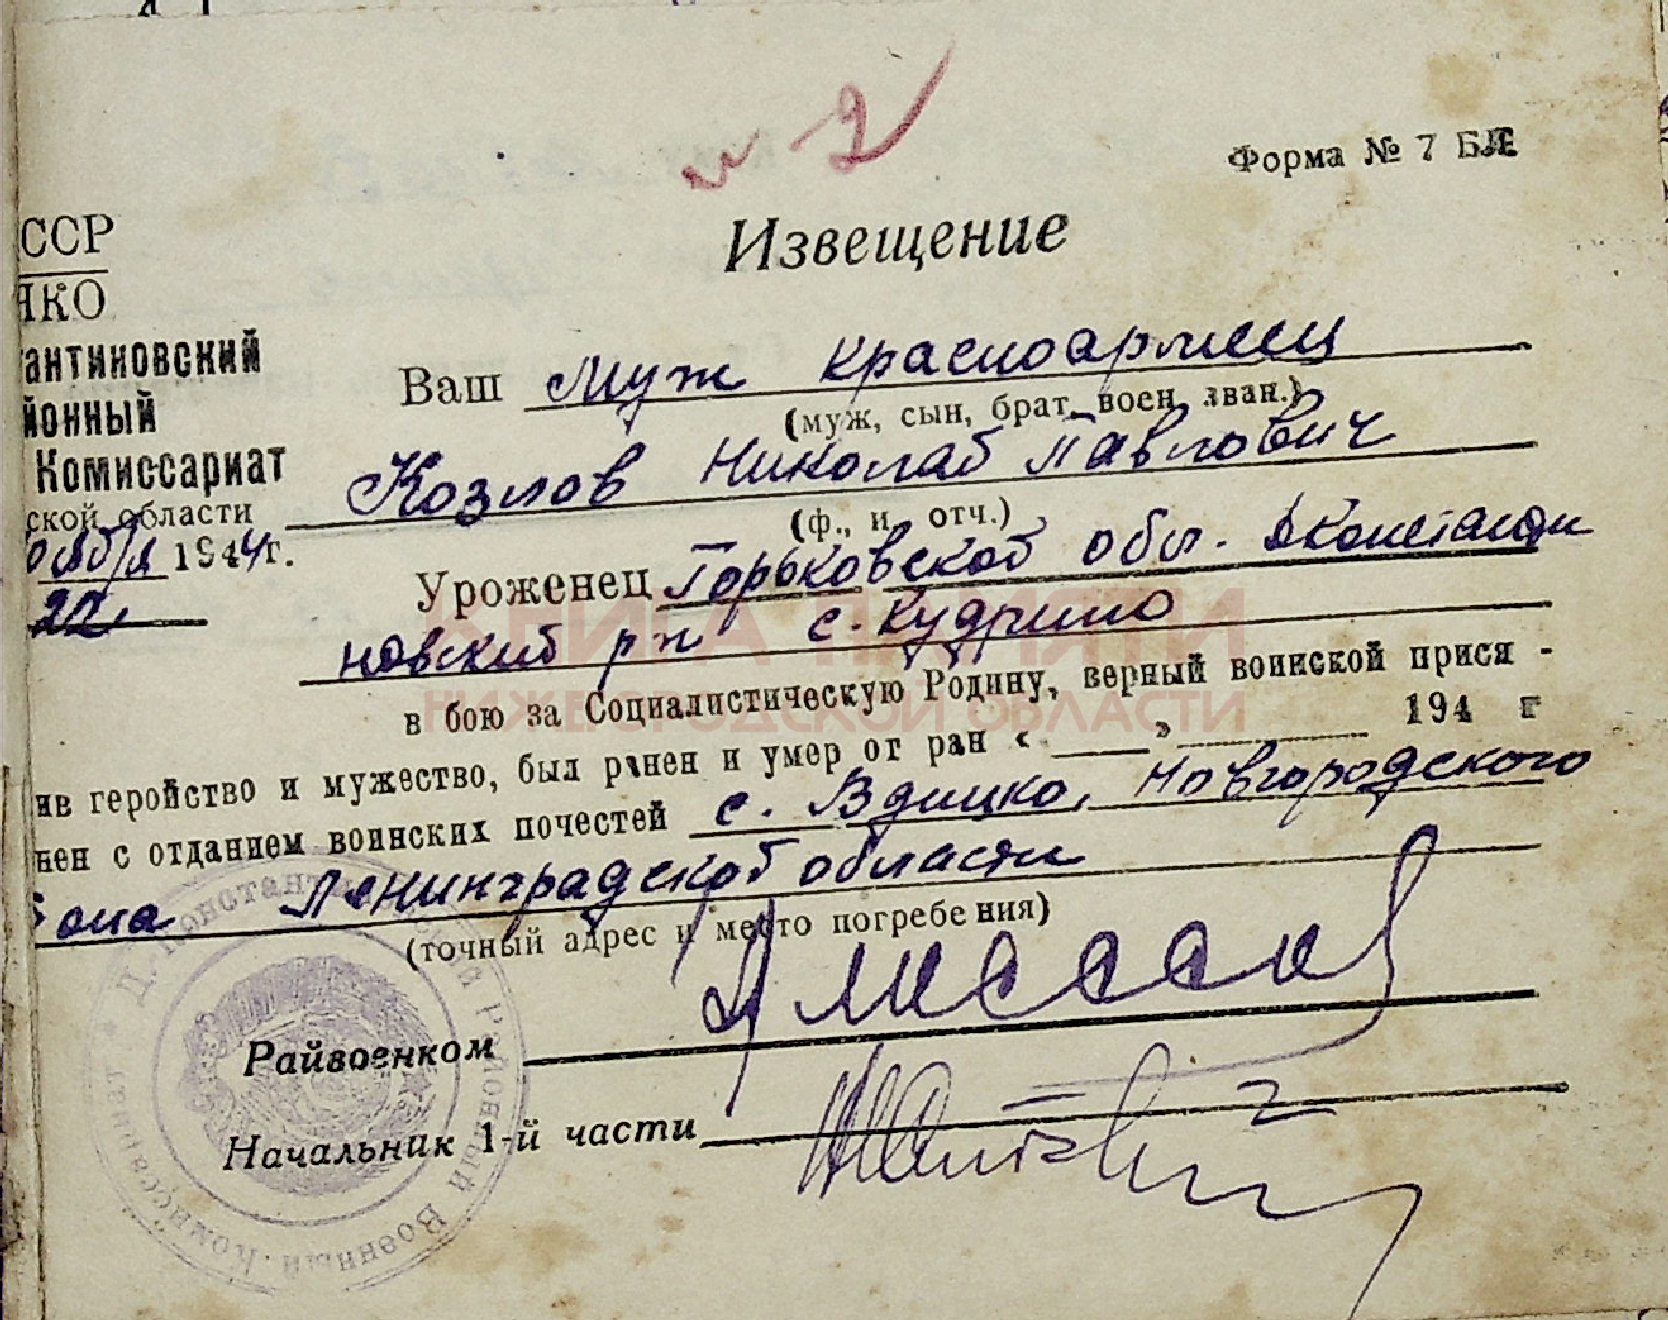 и-2
Форма № 7 БЛ
Извещение
ССР
НКО
антиновский
йонный
Комиссариат
ской области
1944г.
221
Ваш муж красноармеец
(муж, сын, брат, воен. зван.)
Козлов Николай Павлович
(ф., и., отч.)
Уроженец Горьковской обл. Дконстанти
новский р-н с. Кудрино
в бою за Социалистическую Родину, верный воинской прися -
ив геройство и мужество, был ранен и умер от ран « » 194 г
нен с отданием воинских почестей с. Вдицко, Новгородского
она Ленинградской области
(точный адрес и место погребения)
Райвоенком
Начальник 1-й части
Д. Константиновский Районный Военный Комиссариат
КНИГА ПАМЯТИ
НИЖЕГОРОДСКОЙ ОБЛАСТИ